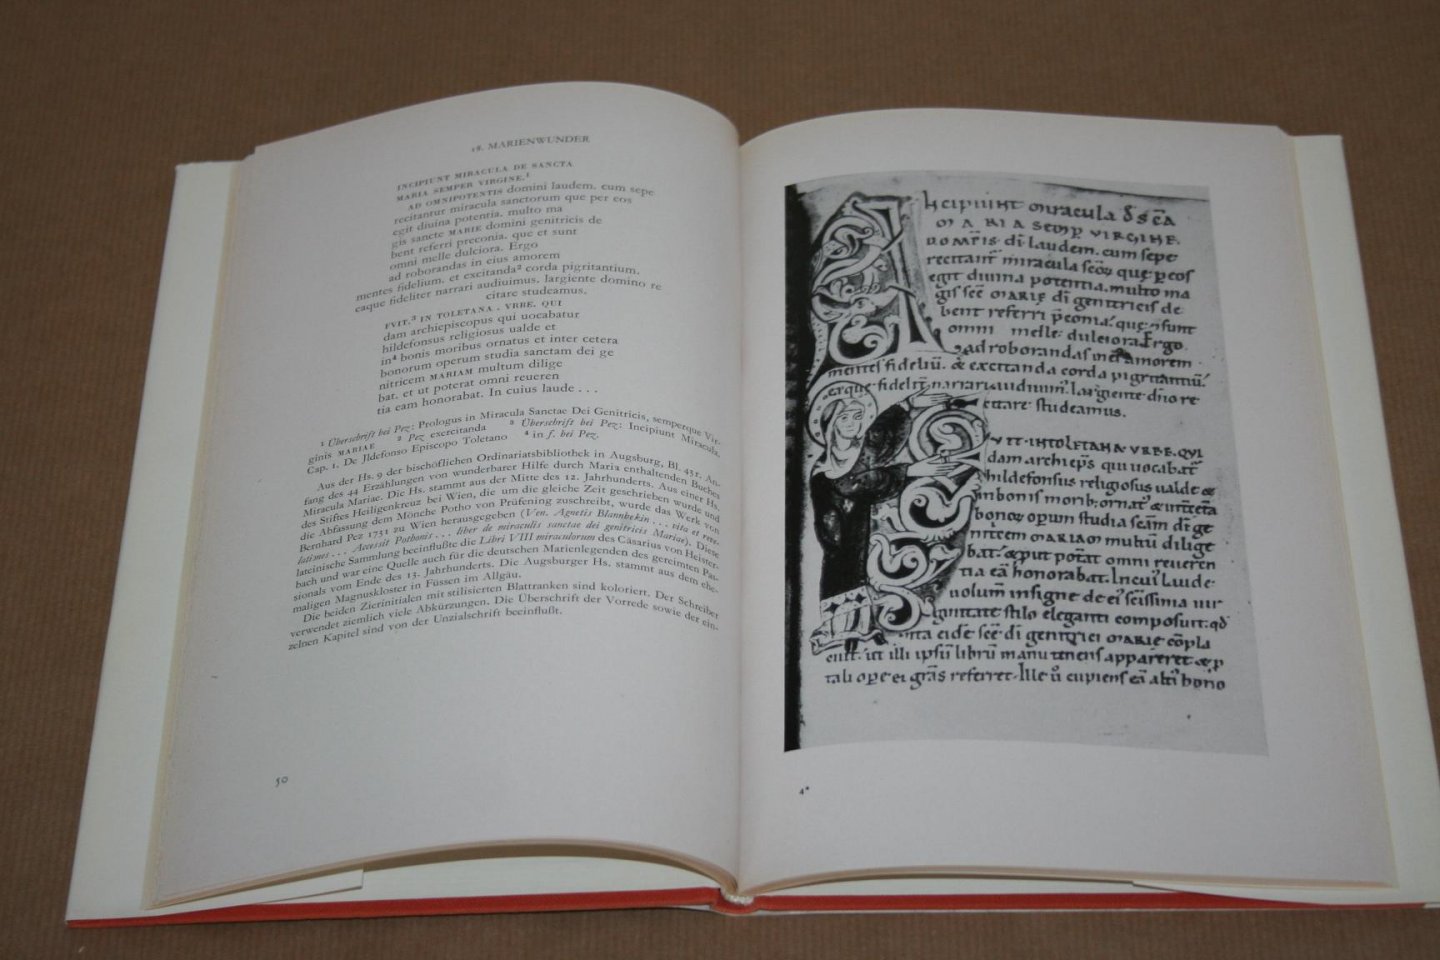 18. MARIENWUNDER
INCIPIUNT MIRACULA DE SANCTA
MARIA SEMPER VIRGINE.¹
AD OMNIPOTENTIS domini laudem. cum sepe
recitantur miracula sanctorum que per eos
egit diuina potentia. multo ma
gis sancte MARIE domini genitricis de
bent referri preconia. que et sunt
omni melle dulciora. Ergo
ad roborandas in eius amorem
mentes fidelium. et excitanda² corda pigritantium.
eaque fideliter narrari audiuimus. largiente domino re
citare studeamus.
FVIT.³ IN TOLETANA . VRBE. QUI
dam archiepiscopus qui uocabatur
hildefonsus religiosus ualde et
in⁴ bonis moribus ornatus et inter cetera
bonorum operum studia sanctam dei ge
nitricem MARIAM multum dilige
bat. et ut poterat omni reueren
tia eam honorabat. In cuius laude . . .
¹ Überschrift bei Pez: Prologus in Miracula Sanctae Dei Genitricis, semperque Vir-
ginis MARIAE ² Pez exercitanda ³ Überschrift bei Pez: Incipiunt Miracula.
Cap. 1. De Jldefonso Episcopo Toletano ⁴ in f. bei Pez.
Aus der Hs. 9 der bischöflichen Ordinariatsbibliothek in Augsburg, Bl. 43r. An-
fang des 44 Erzählungen von wunderbarer Hilfe durch Maria enthaltenden Buches
Miracula Mariae. Die Hs. stammt aus der Mitte des 12. Jahrhunderts. Aus einer Hs.
des Stiftes Heiligenkreuz bei Wien, die um die gleiche Zeit geschrieben wurde und
die Abfassung dem Mönche Potho von Prüfening zuschreibt, wurde das Werk von
Bernhard Pez 1731 zu Wien herausgegeben (Ven. Agnetis Blannbekin . . . vita et reve-
lationes . . . Accessit Pothonis . . . liber de miraculis sanctae dei genitricis Mariae). Diese
lateinische Sammlung beeinflußte die Libri VIII miraculorum des Cäsarius von Heister-
bach und war eine Quelle auch für die deutschen Marienlegenden des gereimten Pas-
sionals vom Ende des 13. Jahrhunderts. Die Augsburger Hs. stammt aus dem ehe-
maligen Magnuskloster in Füssen im Allgäu.
Die beiden Zierinitialen mit stilisierten Blattranken sind koloriert. Der Schreiber
verwendet ziemlich viele Abkürzungen. Die Überschrift der Vorrede sowie der ein-
zelnen Kapitel sind von der Unzialschrift beeinflußt.
50
Incipiunt miracula de scͣ
MARIA SEMP̄ VIRGINE.
A D OMP̄IS. dn̄i laudem. cum sepe
recitant᷑ miracula scōꝝ que ꝑ eos
egit diuina potentia. multo ma
gis scē MARIE dn̄i genitricis de
bent referri p̄conia. que ⁊ sunt
omni melle dulciora. Ergo
ad roborandas in ei᷒ amorem
mentes fideliū. & excitanda corda pigritantiū.
eaque fidelit᷑ narrari audiuim᷒. largiente dn̄o re
citare studeamus.
FVIT. IN TOLETANA VRBE. QVI
dam archiep̄s qui uocabat᷑
hildefonsus religiosus ualde &
in bonis morib᷒ ornat᷒ & int᷑ cet̄a
bonoꝝ operum studia scām dī ge
nitricem MARIAM multū dilige
bat. & ut pot̄at omni reueren
tia eā honorabat. In cui᷒ laude
uolum̄ insigne de ei᷒ scissima uir
ginitate stilo eleganti composuit. qd̄
ita eide scē dī genitrici MARIE cōpla
cuit. ut illi ipsū librū manu tenens appareret & ꝓ
tali oꝑe ei grās referret. Ille ū cupiens eā alti᷒ hono
4*